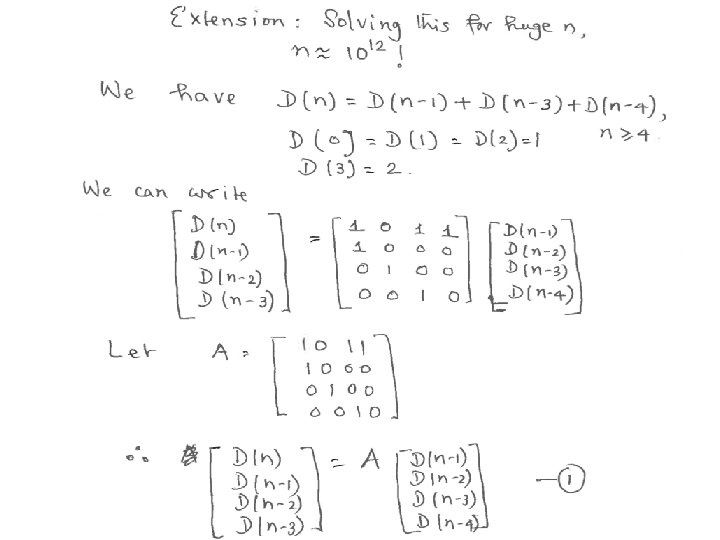 Extension: Solving this for huge n,
n ≈ 10^12 !
We have D(n) = D(n-1) + D(n-3) + D(n-4),
D(0] = D(1) = D(2) = 1 n ≥ 4.
D(3) = 2.
We can write
[D(n) D(n-1) D(n-2) D(n-3)] = [1 0 1 1; 1 0 0 0; 0 1 0 0; 0 0 1 0] [D(n-1) D(n-2) D(n-3) D(n-4)]
Let A = [1 0 1 1; 1 0 0 0; 0 1 0 0; 0 0 1 0]
∴ [D(n) D(n-1) D(n-2) D(n-3)] = A [D(n-1) D(n-2) D(n-3) D(n-4)] — ①